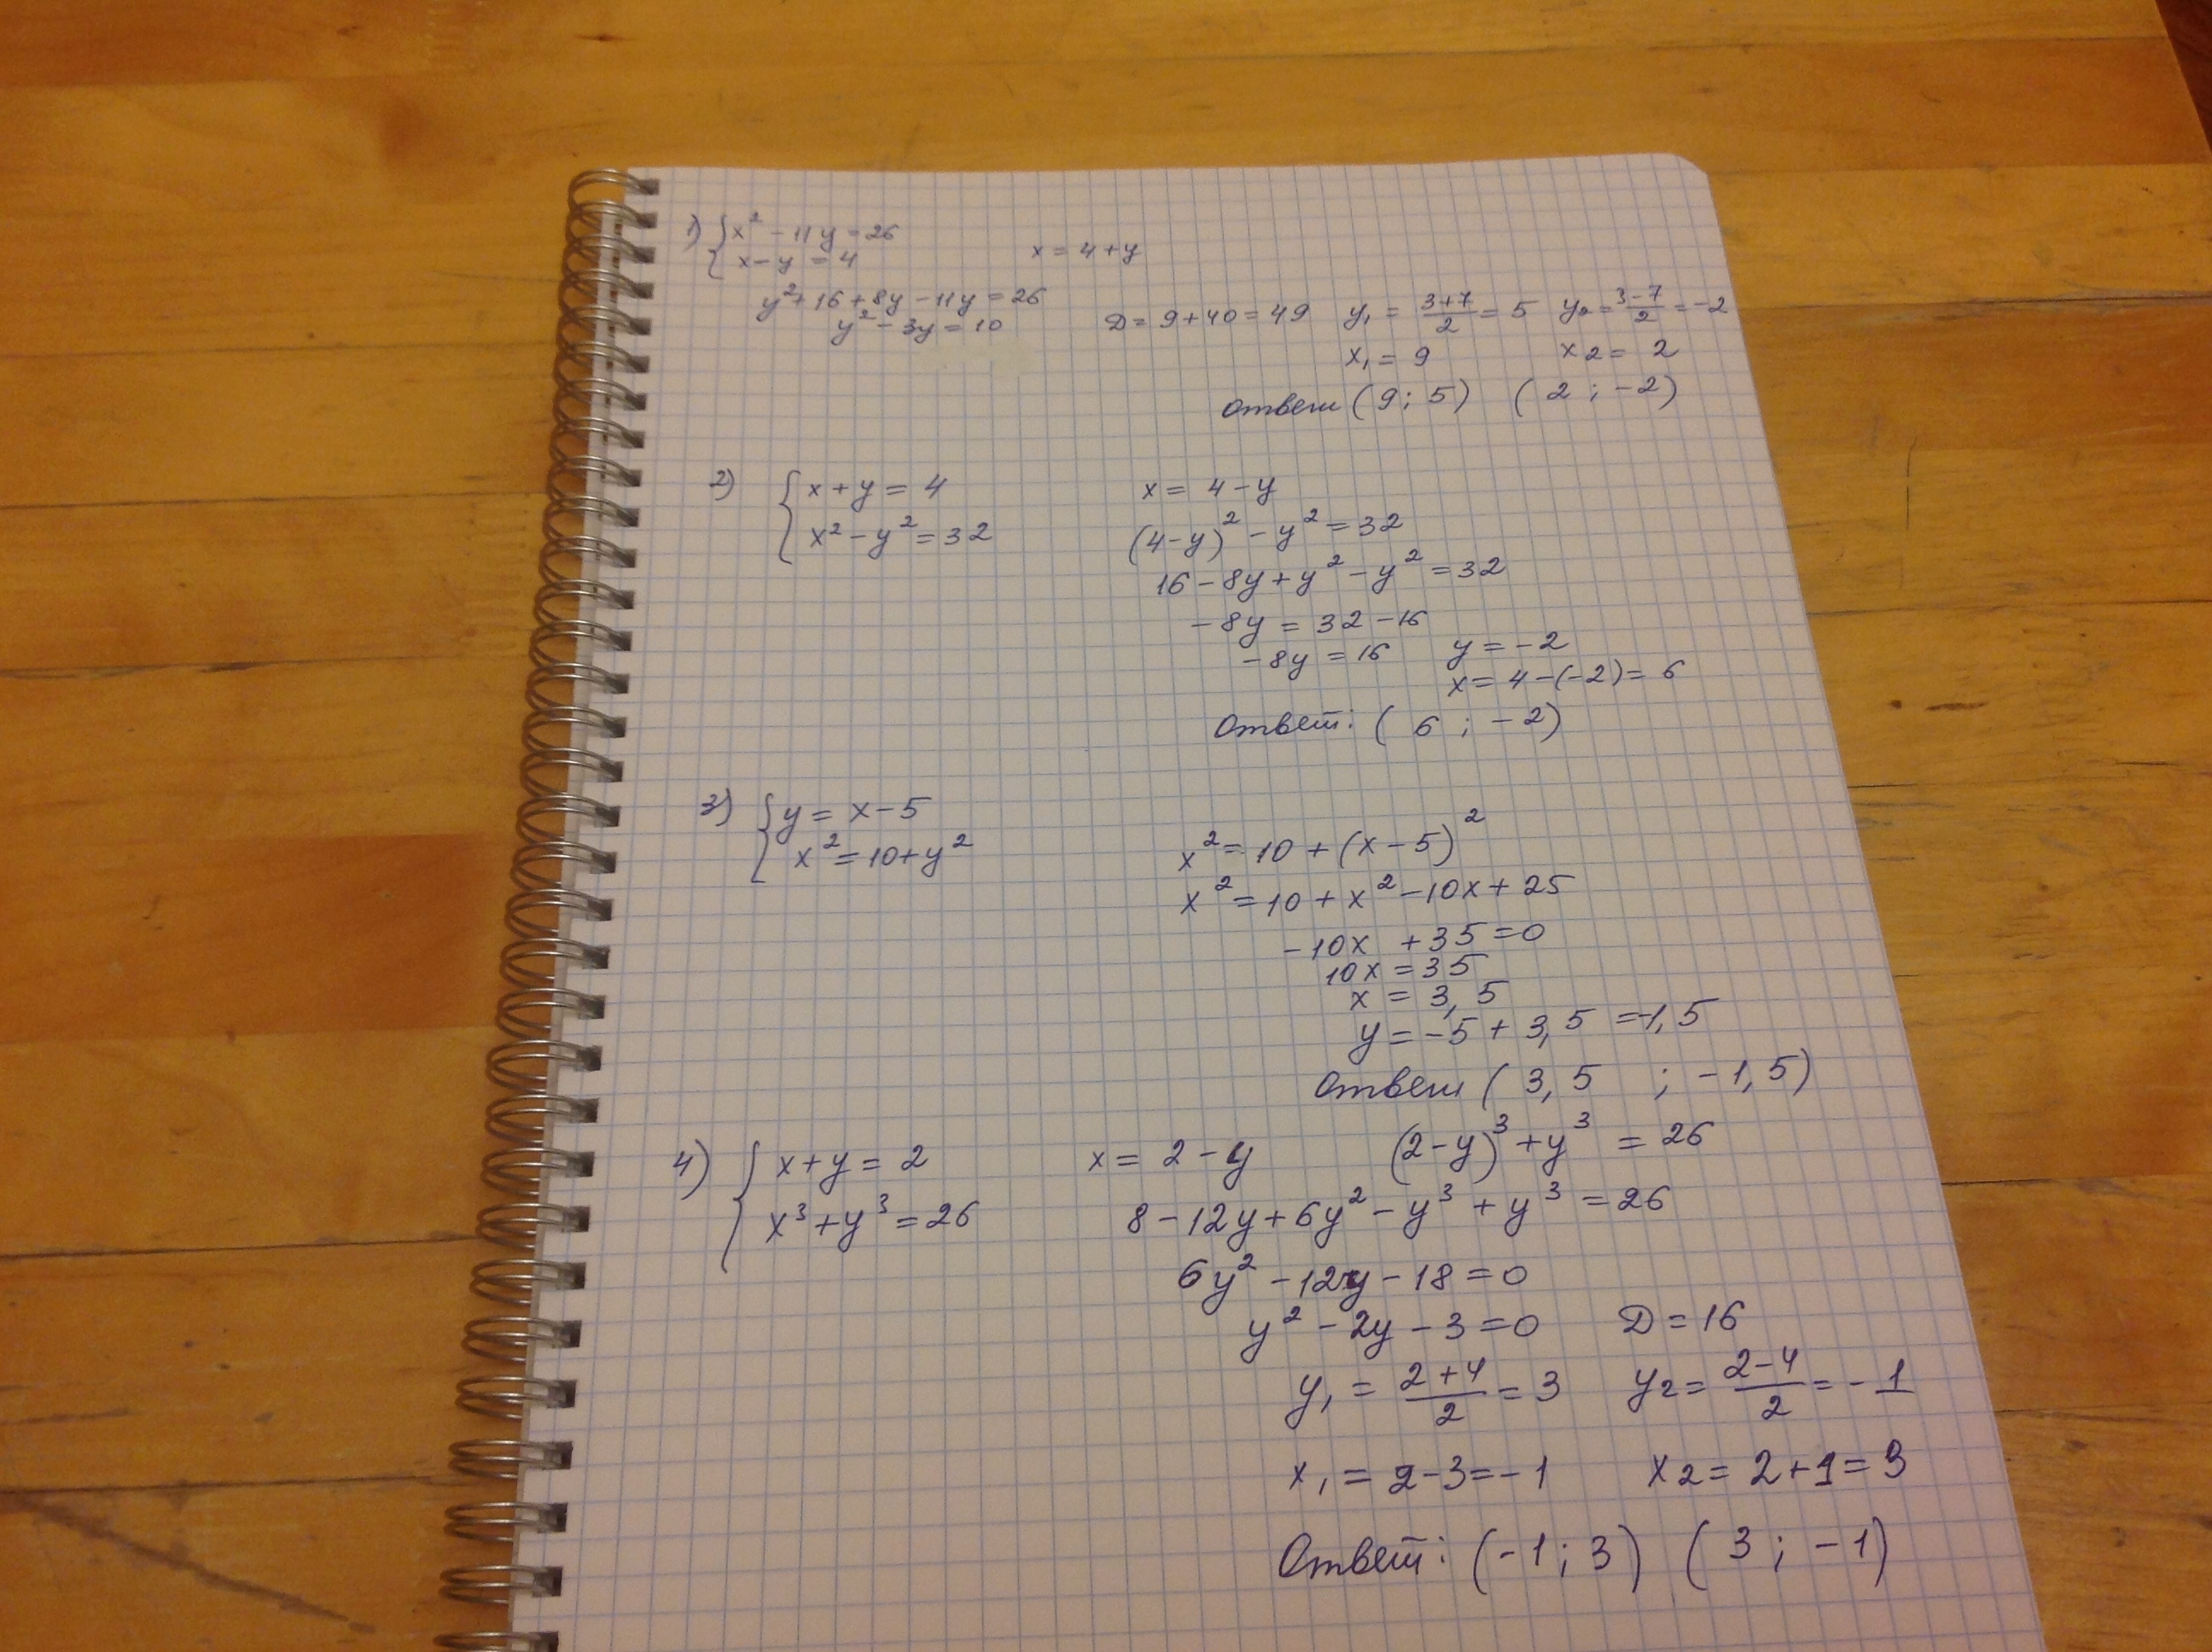 1) { x² - 11y = 26
x - y = 4
x = 4 + y
y² + 16 + 8y - 11y = 26
y² - 3y = 10
D = 9 + 40 = 49 y₁ = (3+7)/2 = 5 y₂ = (3-7)/2 = -2
x₁ = 9 x₂ = 2
Ответ (9; 5) (2; -2)
2) { x + y = 4
x² - y² = 32
x = 4 - y
(4 - y)² - y² = 32
16 - 8y + y² - y² = 32
-8y = 32 - 16
-8y = 16 y = -2
x = 4 - (-2) = 6
Ответ: (6; -2)
3) { y = x - 5
x² = 10 + y²
x² = 10 + (x - 5)²
x² = 10 + x² - 10x + 25
-10x + 35 = 0
10x = 35
x = 3,5
y = -5 + 3,5 = -1,5
Ответ (3,5 ; -1,5)
4) { x + y = 2
x³ + y³ = 26
x = 2 - y (2 - y)³ + y³ = 26
8 - 12y + 6y² - y³ + y³ = 26
6y² - 12y - 18 = 0
y² - 2y - 3 = 0 D = 16
y₁ = (2+4)/2 = 3 y₂ = (2-4)/2 = -1
x₁ = 2 - 3 = -1 x₂ = 2 + 1 = 3
Ответ: (-1; 3) (3; -1)